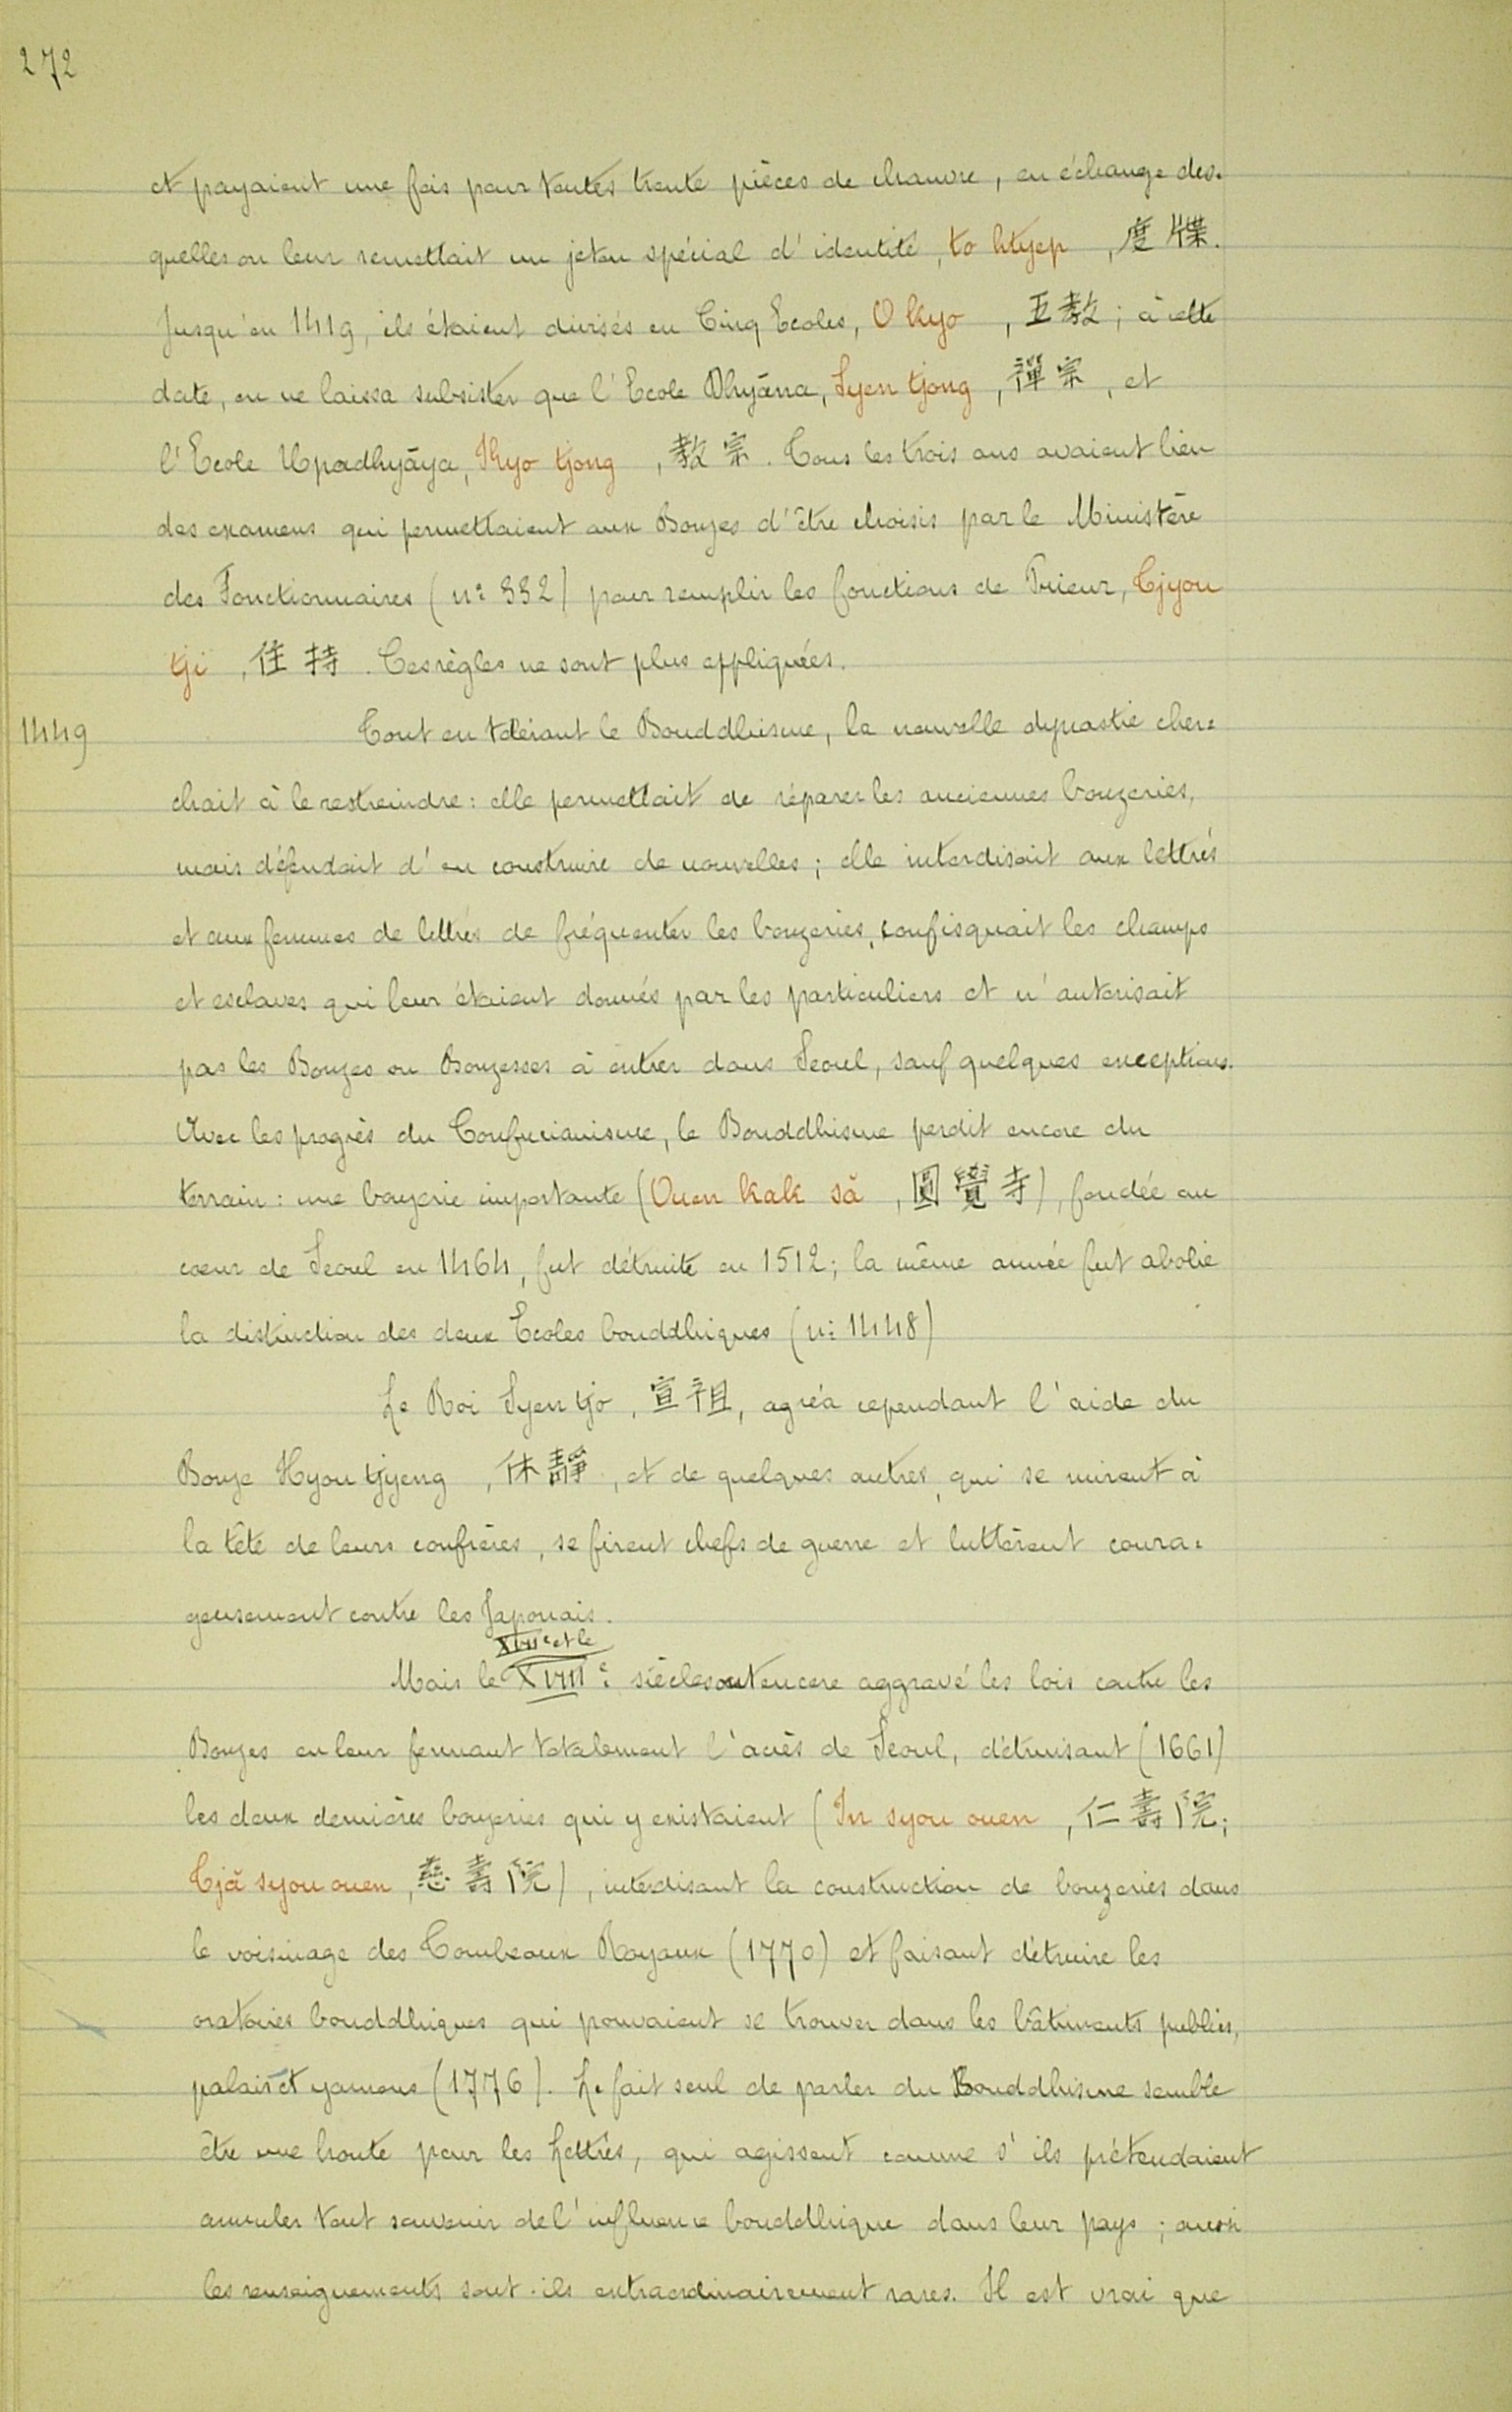 272
et payaient une fois pour toutes trente pièces de chanvre, en échange des-
quelles on leur remettait un jeton spécial d'identité, to htyep, 度牒.
Jusqu'en 1419, ils étaient divisés en Cinq Ecoles, O kyo, 五教; à cette
date, on ne laissa subsister que l'Ecole Dhyāna, Syen tjong, 禪宗, et
l'Ecole Upadhyāya, Kyo tjong, 教宗. Tous les trois ans avaient lieu
des examens qui permettaient aux Bonzes d'être choisis par le Ministère
des Fonctionnaires (nº 332) pour remplir les fonctions de Prieur, Tjyou
tji, 住持. Ces règles ne sont plus appliquées.
1449 Tout en tolérant le Bouddhisme, la nouvelle dynastie cher=
chait à le restreindre: elle permettait de réparer les anciennes bonzeries,
mais défendait d'en construire de nouvelles; elle interdisait aux lettrés
et aux femmes de lettrés de fréquenter les bonzeries, confisquait les champs
et esclaves qui leur étaient donnés par les particuliers et n'autorisait
pas les Bonzes ou Bonzesses à entrer dans Seoul, sauf quelques exceptions.
Avec les progrès du Confucianisme, le Bouddhisme perdit encore du
terrain: une bonzerie importante (Ouen kak să, 圓覺寺), fondée au
coeur de Seoul en 1464, fut détruite en 1512; la même année fut abolie
la distinction des deux Ecoles bouddhiques (nº 1448)
Le Roi Syen tjo, 宣祖, agréa cependant l'aide du
Bonze Hyou tjyeng, 休靜, et de quelques autres, qui se mirent à
la tête de leurs confrères, se firent chefs de guerre et luttèrent coura=
geusement contre les Japonais.
XVIIe et le
Mais le XVIIIe siècles ont encore aggravé les lois contre les
Bonzes en leur fermant totalement l'accès de Seoul, détruisant (1661)
les deux dernières bonzeries qui y existaient (In syou ouen, 仁壽院;
Tjă syou ouen, 慈壽院), interdisant la construction de bonzeries dans
le voisinage des Tombeaux Royaux (1770) et faisant détruire les
oratoires bouddhiques qui pouvaient se trouver dans les bâtiments publics,
palais et yamens (1776). Le fait seul de parler du Bouddhisme semble
être une honte pour les Lettrés, qui agissent comme s'ils prétendaient
annuler tout souvenir de l'influence bouddhique dans leur pays; aussi
les renseignements sont-ils extraordinairement rares. Il est vrai que